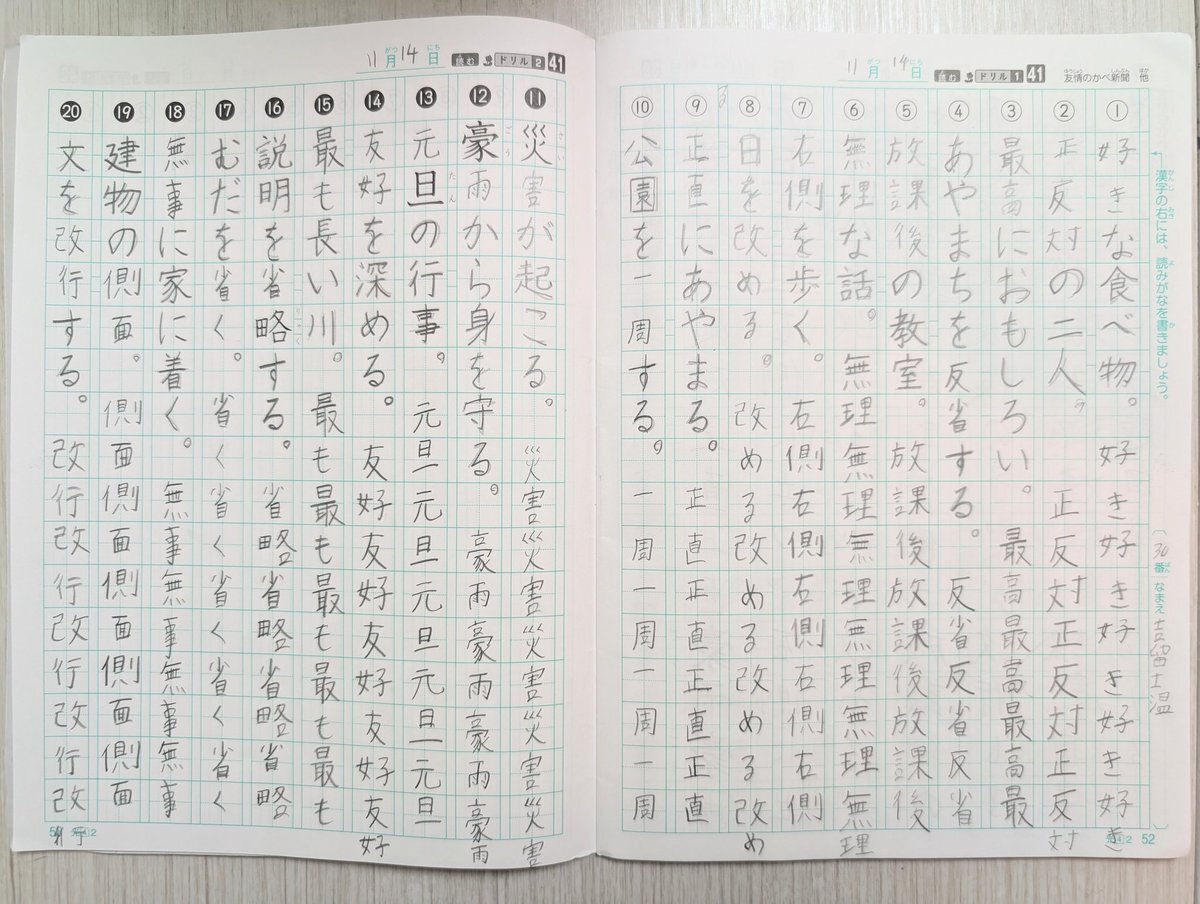 友情のかべ新聞 他
41 ドリル1 読む
11月14日
漢字の右には、読みがなを書きましょう。
〔30番 なまえ 吉留士温〕
① 好きな食べ物。 好き好き好き好き好き
② 正反対の二人。 正反対正反対正反対
③ 最高におもしろい。 最高最高最高最
④ あやまちを反省する。 反省反省反省
⑤ 放課後の教室。 放課後放課後放課後
⑥ 無理な話。 無理無理無理無理無理無理
⑦ 右側を歩く。 右側右側右側右側右側
⑧ 日を改める。 改める改める改める改め
⑨ 正直にあやまる。 正直正直正直正直
⑩ 公園を一周する。 一周一周一周一周
52
41 ドリル2 読む
11月14日
⑪ 災害が起こる。 災害災害災害災害災害
⑫ 豪雨から身を守る。 豪雨豪雨豪雨豪雨
⑬ 元旦の行事。 元旦元旦元旦元旦元旦
⑭ 友好を深める。 友好友好友好友好友好
⑮ 最も長い川。 最も最も最も最も最も
⑯ 説明を省略する。 省略省略省略省略
⑰ むだを省く。 省く省く省く省く省く
⑱ 無事に家に着く。 無事無事無事無事
⑲ 建物の側面。 側面側面側面側面側面
⑳ 文を改行する。 改行改行改行改行改行